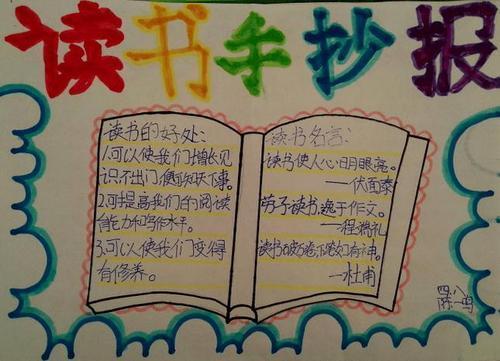 读书手抄报
读书的好处:
1.可以使我们增长见
识不出门便可知天下事。
2.可提高我们的阅读
能力和写作水平。
3.可以使我们变得
有修养。
读书名言:
读书使人心明眼亮。
——伏尔泰
劳于读书,逸于作文。
——程端礼
读书破万卷,下笔如有神。
——杜甫
四、八
陈一鸣